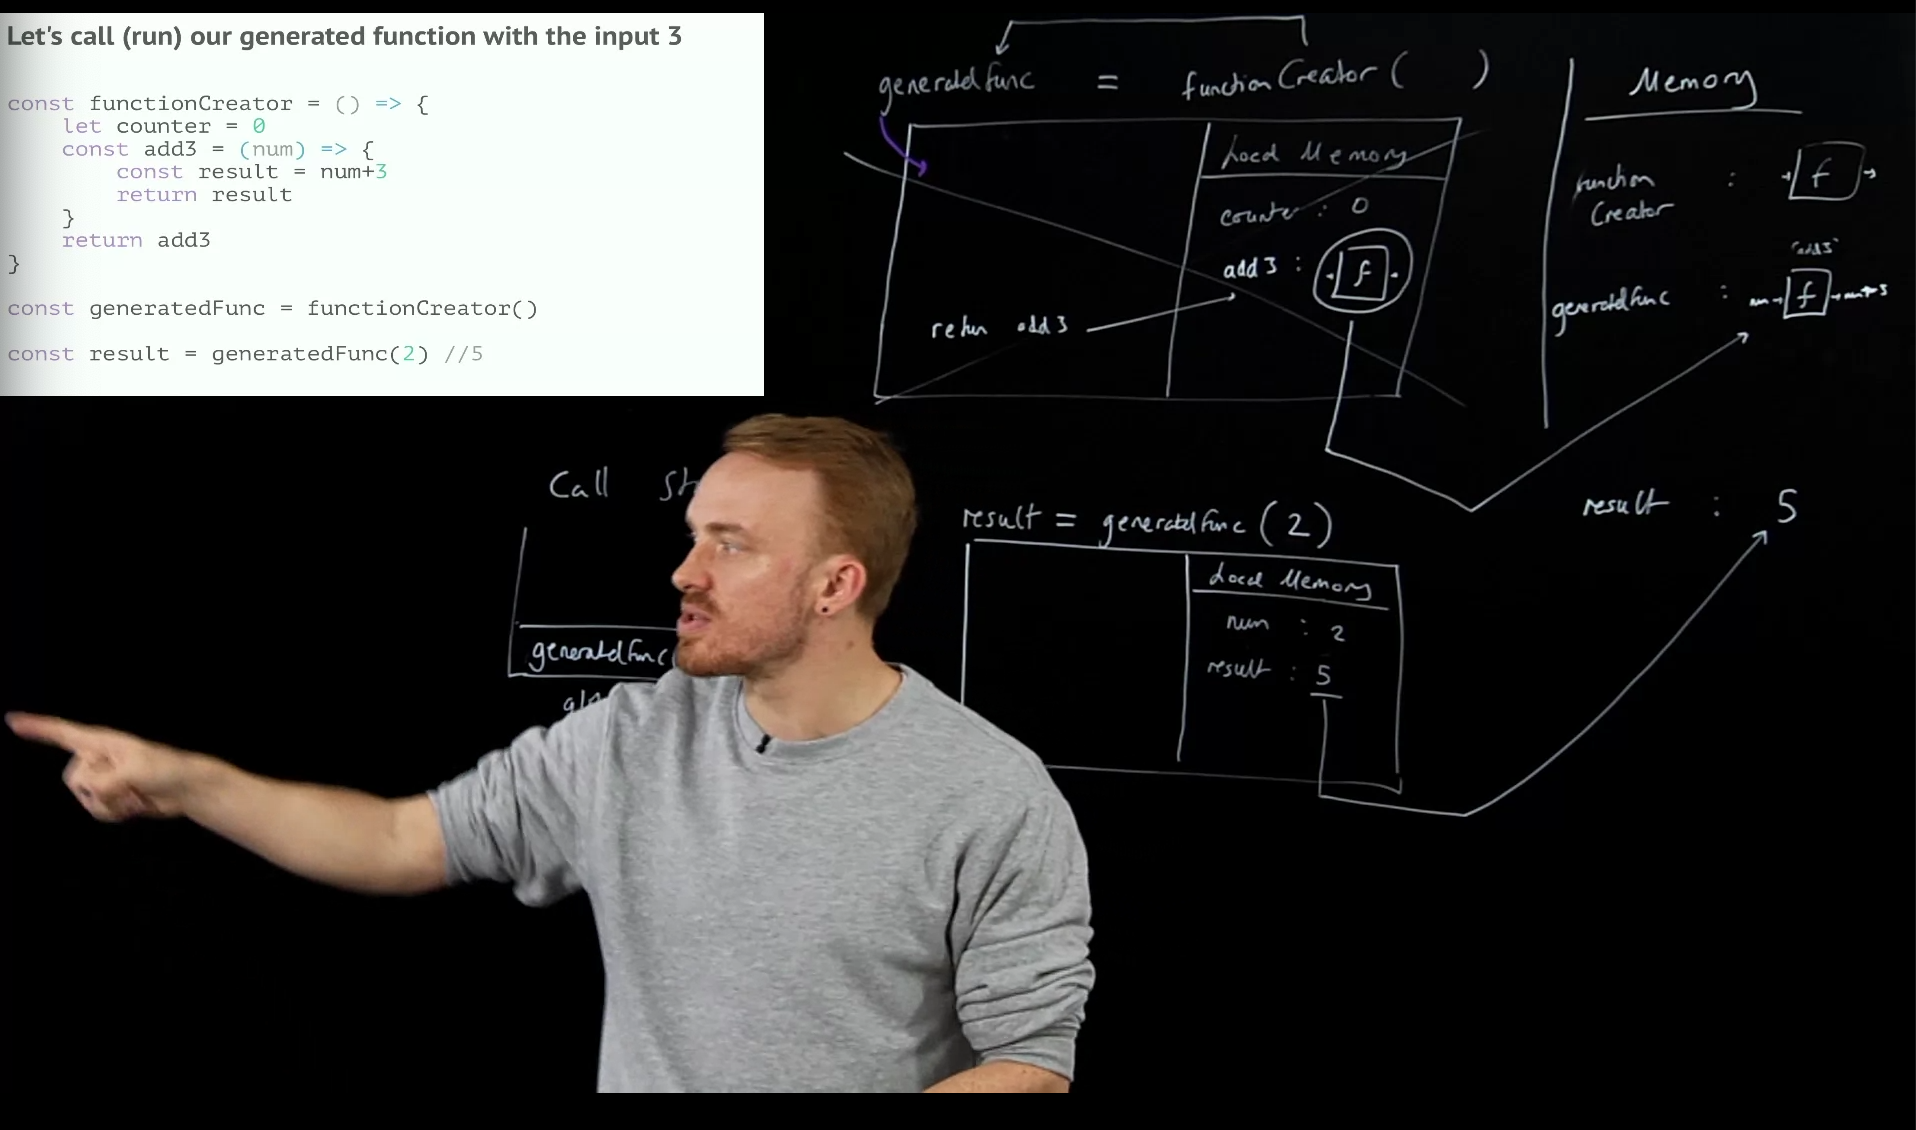 Let's call (run) our generated function with the input 3
const functionCreator = () => {
    let counter = 0
    const add3 = (num) => {
        const result = num+3
        return result
    }
    return add3
}
const generatedFunc = functionCreator()
const result = generatedFunc(2) //5
generatedFunc = functionCreator ( )
Local Memory
counter : 0
add3 : f
return add3
Memory
function Creator : f
"add3"
generatedFunc : f
num+3
Call
generatedFunc(
result = generatedFunc (2)
Local Memory
num : 2
result : 5
result : 5